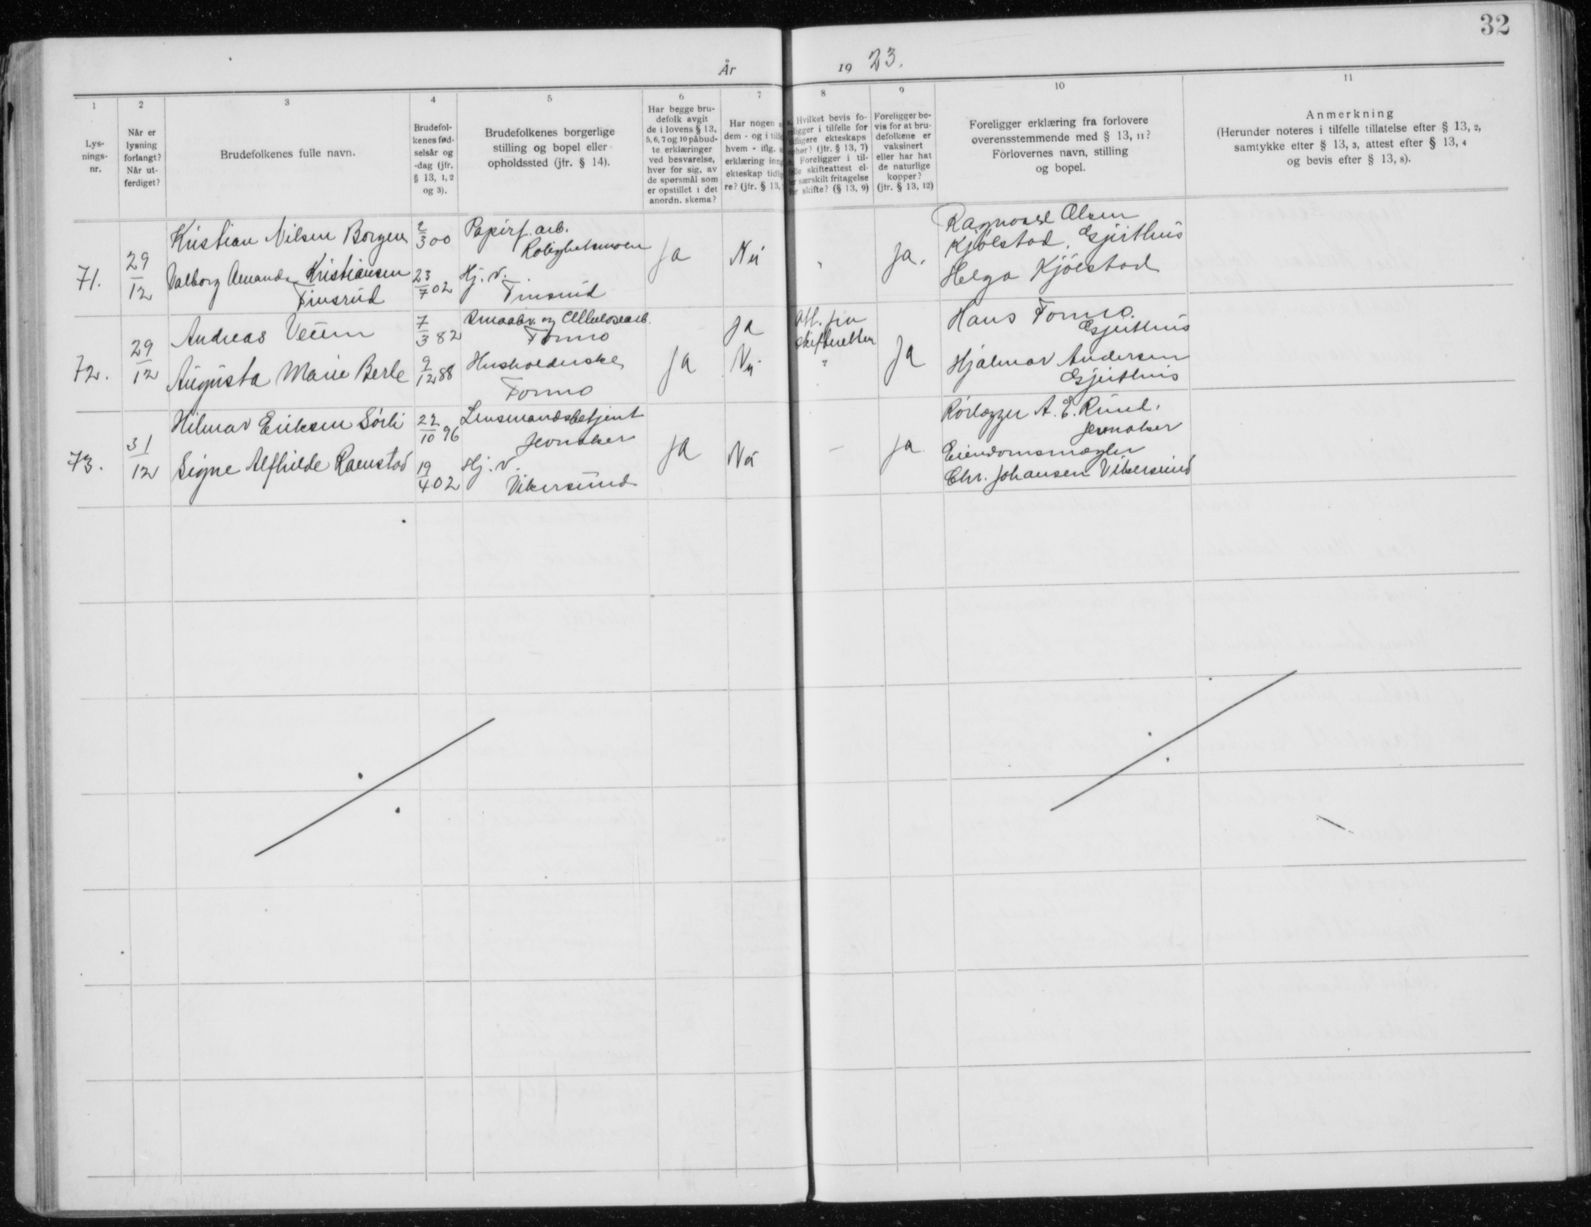 32
År 1923.
1
Lys-
nings-
nr.
2
Når er
lysning
forlangt?
Når ut-
ferdiget?
3
Brudefolkenes fulle navn.
4
Brudefol-
kenes fød-
selsår og
-dag (jfr.
§ 13, 1, 2
og 3).
5
Brudefolkenes borgerlige
stilling og bopel eller
opholdssted (jfr. § 14).
6
Har begge bru-
defolk avgit
de i lovens § 13,
5, 6, 7 og 10 påbud-
te erklæringer
ved besvarelse,
hver for sig, av
de spørsmål som
er opstillet i det
anordn. skema?
7
Har nogen
dem - og i
hvem - iflg.
erklæring
ekteskap
re? (jfr. § 13,
8
Hvilket bevis fo-
ligger i tilfelle for
tidligere ekteskaps
opher? (jfr. § 13, 7)
Foreligger i til-
felle skifteattest el-
ler særskilt fritagelse
for skifte? (§ 13, 9)
9
Foreligger be-
vis for at bru-
defolkene er
vaksinert
eller har hat
de naturlige
kopper?
(jfr. § 13, 12)
10
Foreligger erklæring fra forlovere
overensstemmende med § 13, 11?
Forlovernes navn, stilling
og bopel.
11
Anmerkning
(Herunder noteres i tilfelle tillatelse efter § 13, 2,
samtykke efter § 13, 3, attest efter § 13, 4
og bevis efter § 13, 8).
71.
29/12
Kristian Nilsen Borgen
Valborg Amanda Kristiansen
Finsrud
2/3 00
23/7 02
Papirf. arb.
Hj. v.
Finsrud
Ja
Nei
"
Ja.
Ragnvald Olsen
Kjølstad, Gjeithus
Helga Kjølstad
72.
29/12
Andreas Veum
Augusta Marie Berle
7/3 82
9/12 88
Smaabr. og Cellulosearb.
Formo
Husholderske
Formo
Ja
Ja
Nei
Att. fra
skifteretten
"
Ja
Hans Formo.
Gjeithus
Hjalmar Andersen
Gjeithus
73.
31/12
Hilmar Eriksen Sørli
Signe Alfhilde Ramstad
22/10 96
19/4 02
Lensmandsbetjent
Jevnaker
Hj. v.
Vikersund
Ja
Nei
-
Ja
Rørlægger A. E. Rund,
Jevnaker
Eiendomsmægler
Chr. Johansen Vikersund